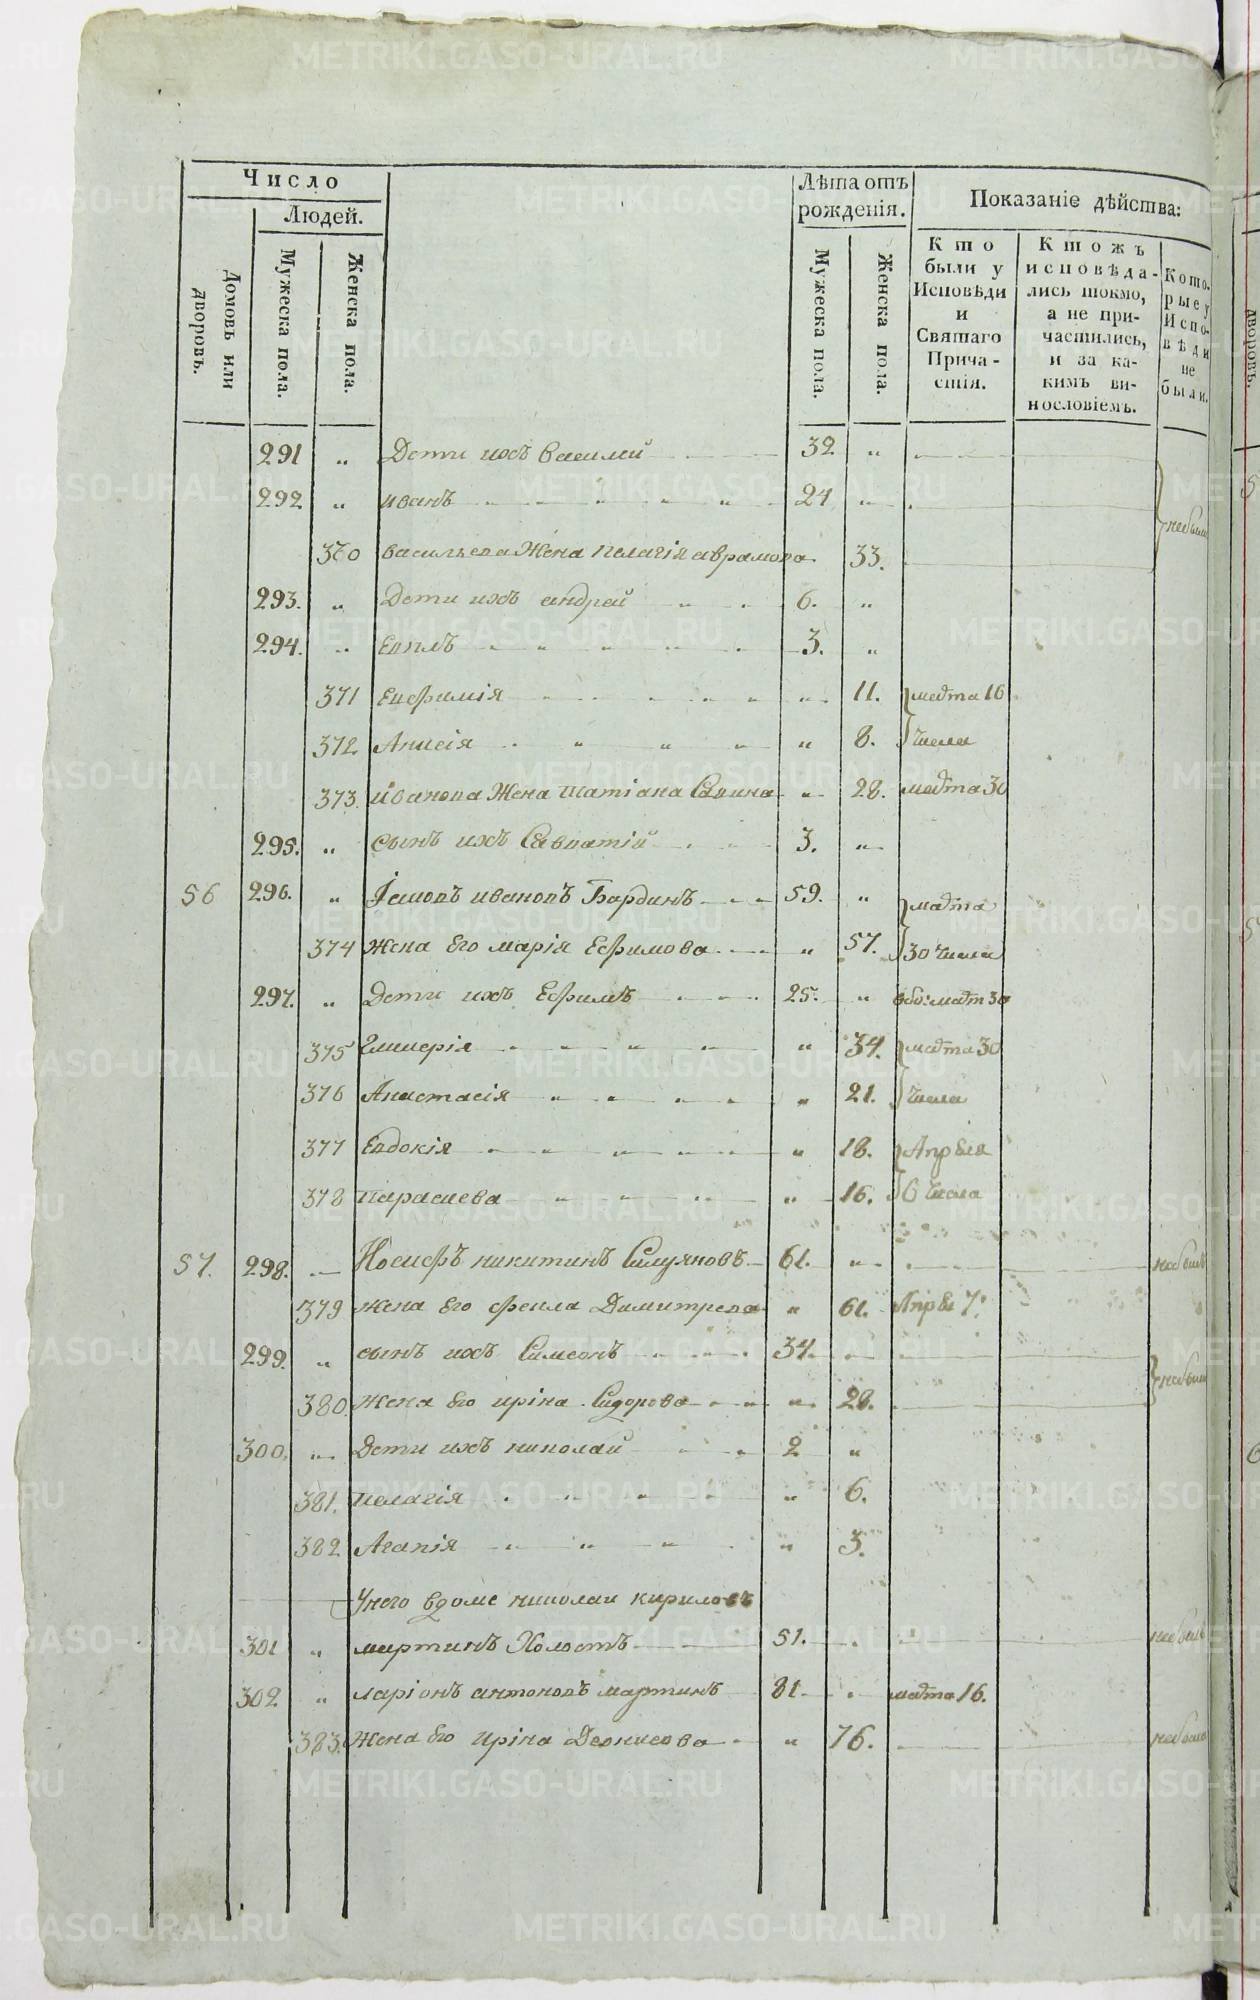 Число
Людей.
Домовъ или дворовъ.
Мужеска пола.
Женска пола.
Лѣта отъ рожденія.
Мужеска пола.
Женска пола.
Показаніе дѣйства:
Кто были у Исповѣди и Святаго Причастія.
Ктожъ исповѣдались токмо, а не причастились, и за какимъ винословіемъ.
Которые у Исповѣди не были.
291 „ Дети ихъ Василий 32 „
292 „ иванъ 24 „ небыли
370 васильева Жена Пелагія аврамова 33.
293. „ Дети ихъ андрей 6. „
294. „ Евплъ 3. „
371 Евфимія „ 11. марта 16
372 Анисія „ 8. числа
373. ивановa Жена татіана Савина „ 28. марта 30
295. „ сынъ ихъ Савватій 3. „
56 296. „ Іаковъ ивановъ Бардинъ 59. „ марта
374 жена Его марія Ефимова „ 57. 30 числа
297. „ Дети ихъ Ефимъ 25. „ март 30
375 Гликерія „ 34. марта 30
376 Анастасія „ 21. числа
377 Евдокія „ 18. Апреля
378 параскева „ 16. 6 числа
57. 298. Иосифъ никитинъ Силуяновъ 61. „ небылъ
379 жена Его фекла Димитрева „ 61. Апре 7.
299. „ сынъ ихъ Симеонъ 34. небыли
380. Жена Его ирина Сидорова „ 28.
300. „ Дети ихъ николай 2 „
381. пелагія „ 6.
382 Агапія „ 3.
Унего вдоме николаи кириловъ
301 „ мартинъ Холостъ 51. небылъ
302. „ ларіонъ антоновъ мартинъ 81. марта 16.
383. Жена Его Ирина Деонисова „ 76. небыла
METRIKI.GASO-URAL.RU